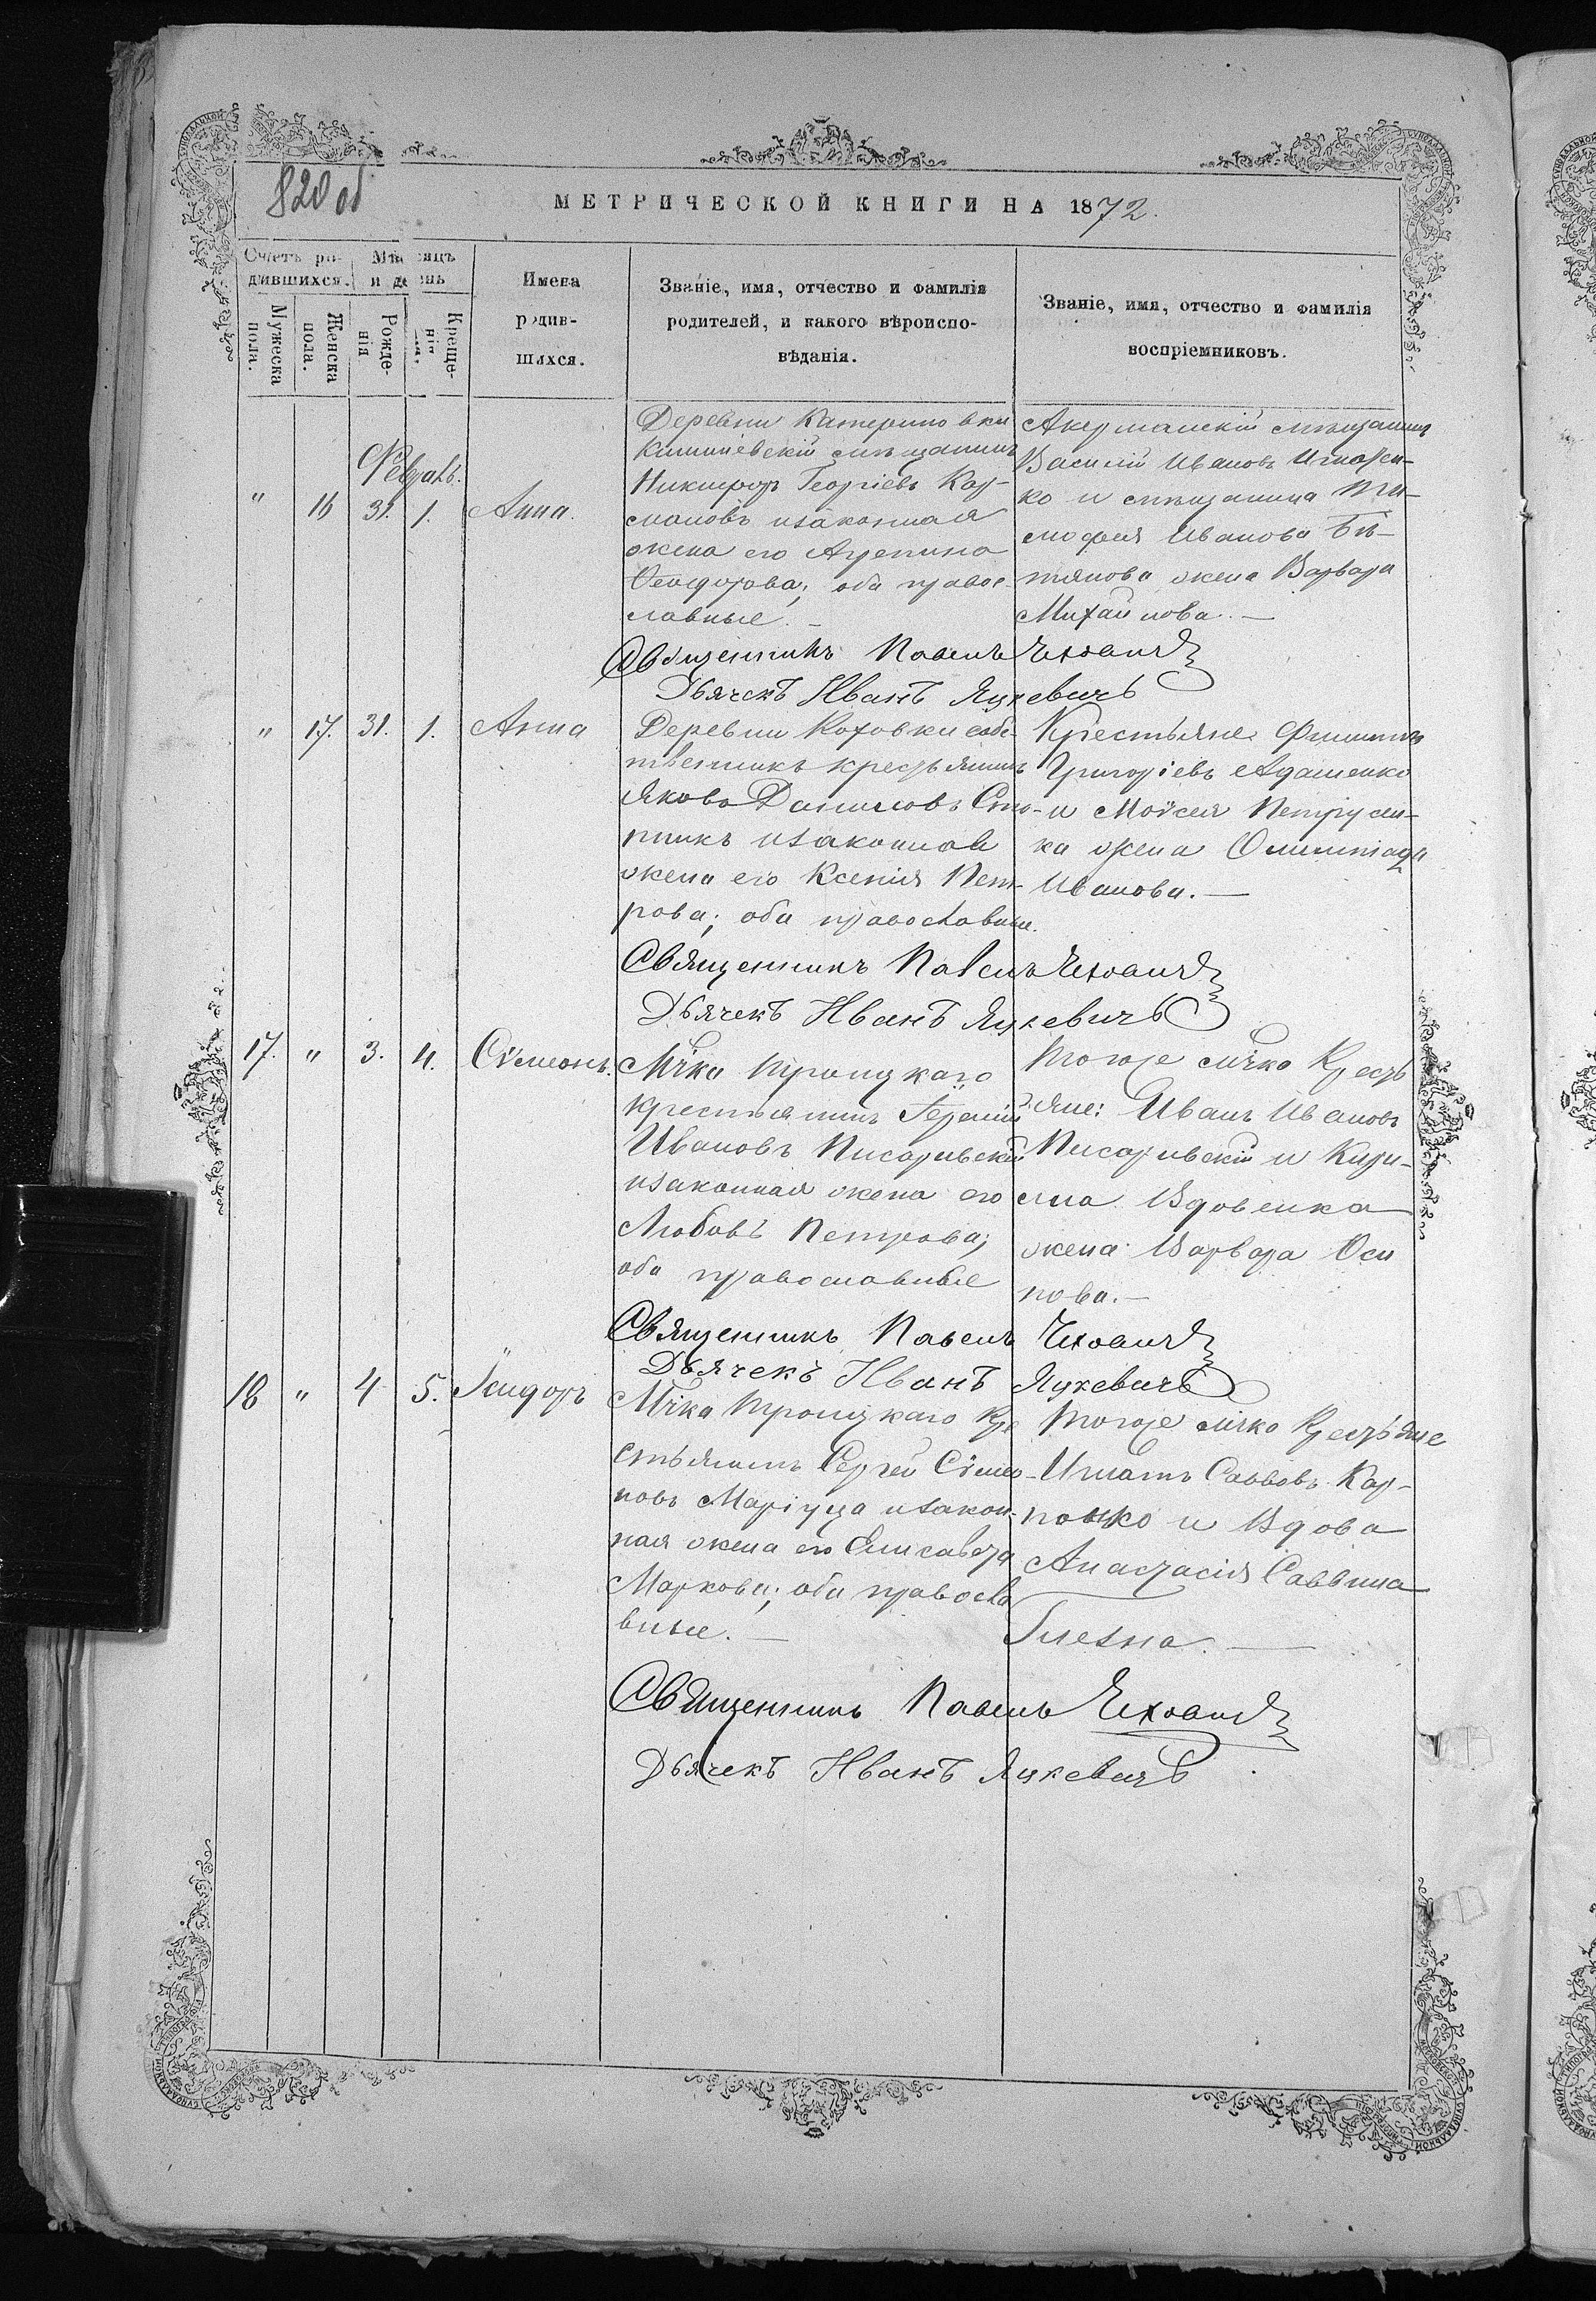 820 об
МЕТРИЧЕСКОЙ КНИГИ НА 1872.
Счетъ ро-
дившихся.
Мѣсяцъ
и день
Мужеска
пола.
Женска
пола.
Рожде-
нія
Креще-
нія.
Имена
родив-
шихся.
Званіе, имя, отчество и фамилія
родителей, и какого вѣроиспо-
вѣданія.
Званіе, имя, отчество и фамилія
воспріемниковъ.
Февраль.
" 16 31. 1. Анна.
Деревни Катериновки
Кишиневскій мѣщанинъ
Никифоръ Георгіевъ Кар-
мановъ изаконная
жена его Агрепина
Феодорова; оба правос-
лавные. –
Акерманскій мѣщанинъ
Василій Ивановъ
ко и мѣщанина Ти-
мофея Иванова
жена Варвара
Михайлова. –
Священникъ Павелъ
Дьячекъ Иванъ Яцкевичъ
" 17. 31. 1. Анна
Деревни Котовки собс-
твенникъ крестьянинъ
Яковъ Даниловъ
изаконная
жена его Ксенія Пет-
рова; оба православные.
Крестьяне Филиппъ
Григоріевъ Адаменко
и Моѵсея Петрусен-
ка жена Олимпіада
Иванова. –
Священникъ Павелъ
Дьячекъ Иванъ Яцкевичъ
17. " 3. 4. Сѵмеонъ.
Мѣчка Троицкаго
крестьянинъ
Ивановъ Писаревскій
изаконная жена его
Любовь Петрова;
оба православные
Тогоже мѣчка Кресть
яне: Иванъ Ивановъ
Писаревскій и Кири-
ла Вдовенка
жена Варвара Оси
пова. –
Священникъ Павелъ
Дьячекъ Иванъ Яцкевичъ
18 " 4 5. Ісидоръ
Мѣчка Троицкаго Кре
стьянинъ Сергей Сѵмео-
новъ Маріуца изакон-
ная жена его Елисавета
Маркова; оба правосла
вные. –
Тогоже мѣчка Крестьяне
Игнатъ Саввовъ Кар-
и Вдова
Анастасія Саввина
–
Священникъ Павелъ
Дьячекъ Иванъ Яцкевичъ